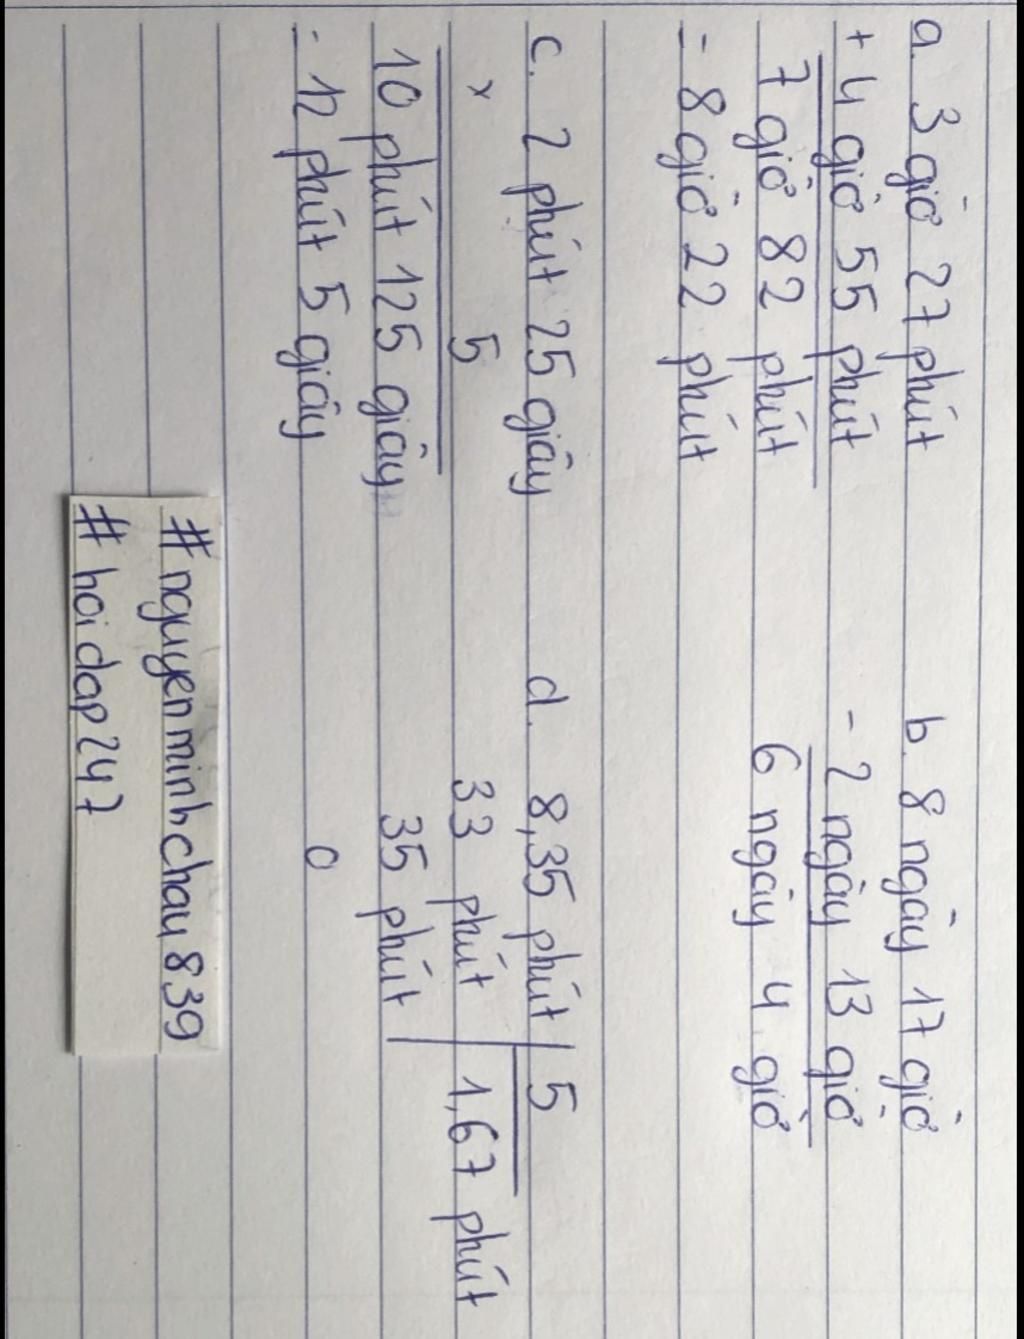 a. 3 giờ 27 phút
+ 4 giờ 55 phút
7 giờ 82 phút
= 8 giờ 22 phút
b. 8 ngày 17 giờ
- 2 ngày 13 giờ
6 ngày 4 giờ
c. 2 phút 25 giây
x 5
10 phút 125 giây
= 12 phút 5 giây
d. 8,35 phút 5
33 phút 1,67 phút
35 phút
0
#nguyenminhchau839
#hoidap247